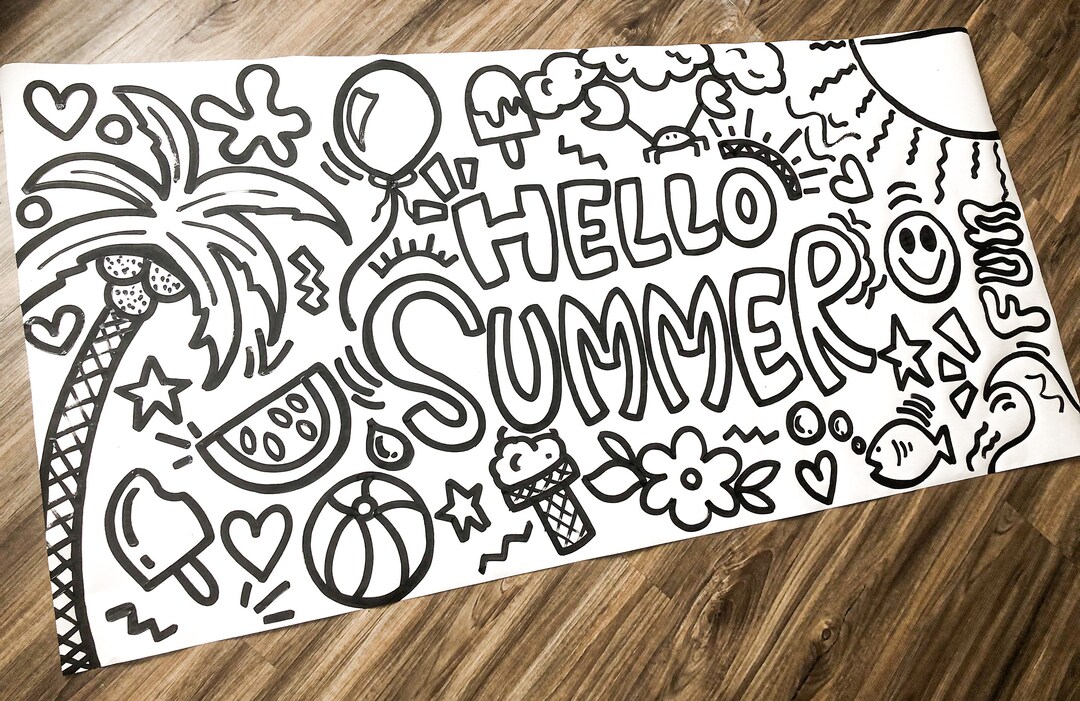 HELLO
SUMMER